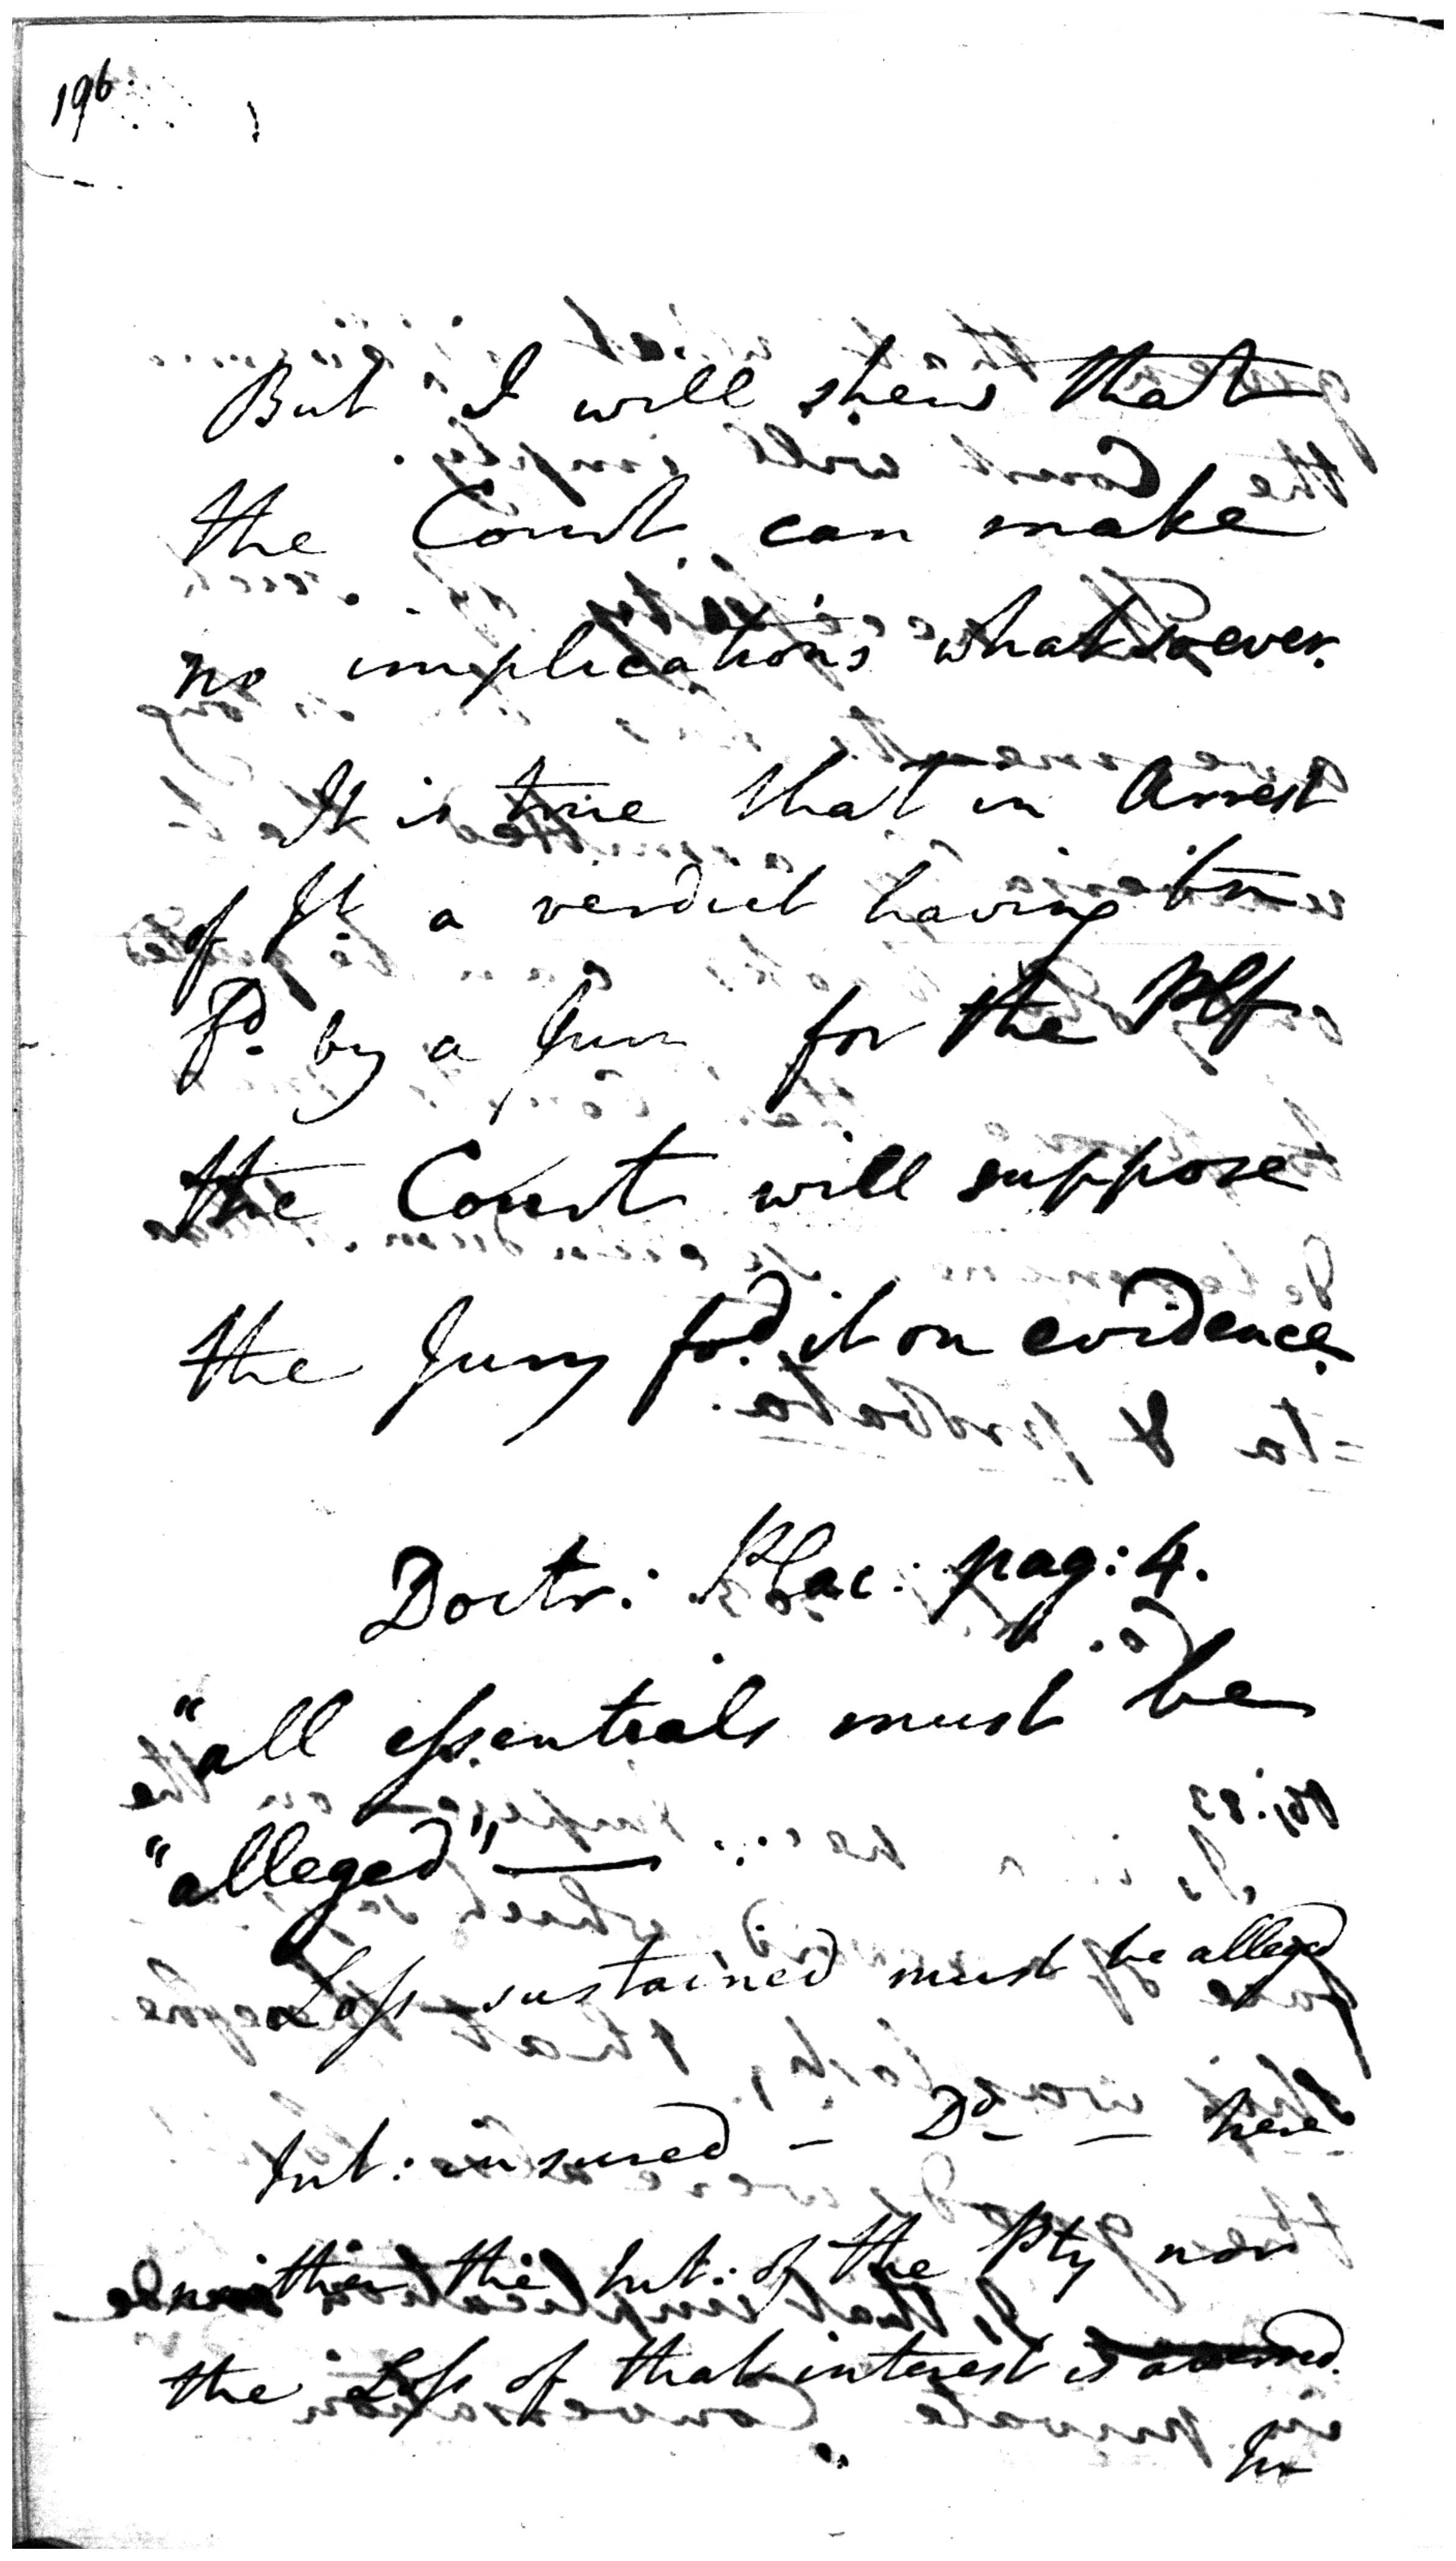 196.
But I will shew that
the Court can make
no implications whatsoever.
It is true that in Arrest
of Jt. a verdict having bn
fd. by a Jury for the Plf
the Court will suppose
the Jury fo.d it on evidence.
Doctr: Plac: pag: 4.
"all essentials must be
"alleged" —
Loss sustained must be alleged
Int: insured — Do — here
neither the Int: of the Pty nor
the Loss of that interest is averred.
In